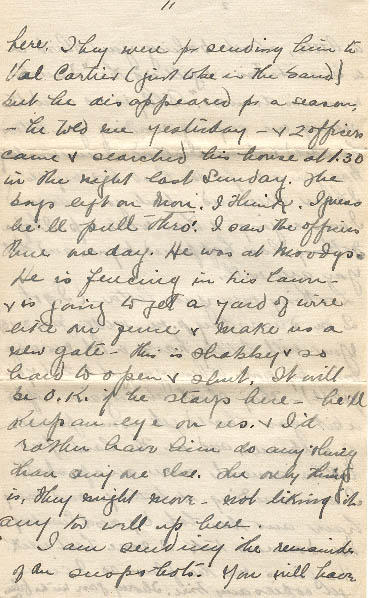 11
here. They were for sending him to
Val Cartier (just to be in the band)
but he disappeared for a season,
- he told me yesterday - & 2 officers
came & searched his house at 1.30
in the night last Sunday. The
boys left on Mon. I think. I guess
he'll pull thro'. I saw the officers
here one day. He was at Moodys.
He is fencing in his lawn -
& is going to get a yard of wire
like our fence & make us a
new gate - this is shabby & so
hard to open & shut. It will
be O.K. if he stays here - he'll
keep an eye on us. & I'd
rather have him do anything
than any one else. The only thing
is, they might move - not liking it
any too well up here.
I am sending the remainder
of the snapshots. You will have